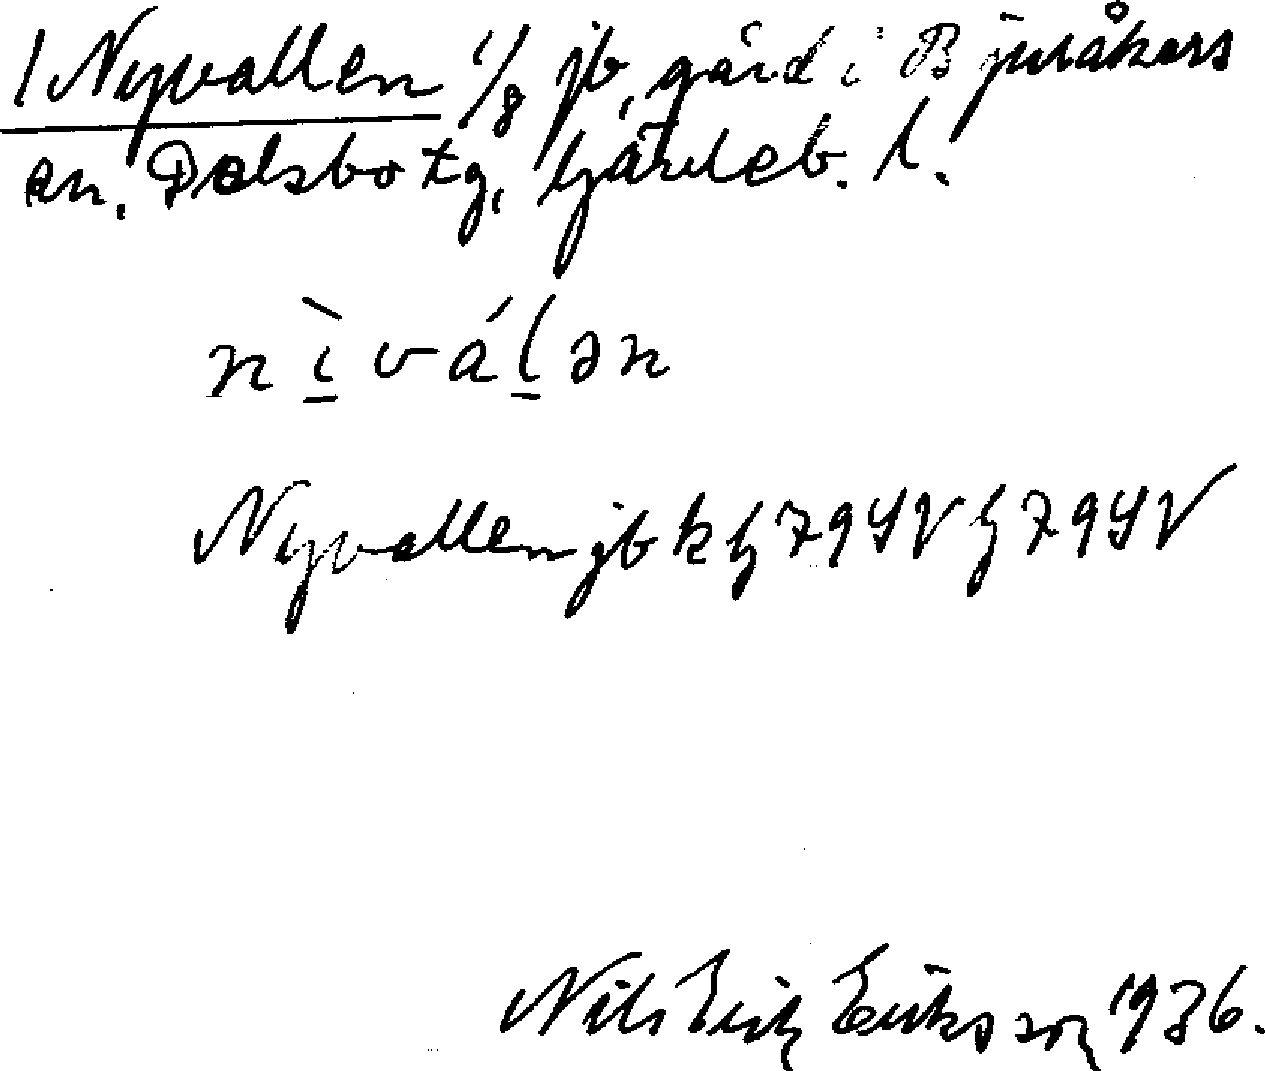 1 Nyvallen 1/8 jb, gård i Bjuråkers
sn. Delsbo tg, Gävleb. l.
nìváḷən
Nyvallen jb k G 79 SV G 79 SV
Nils Erik Eriksson 1936.